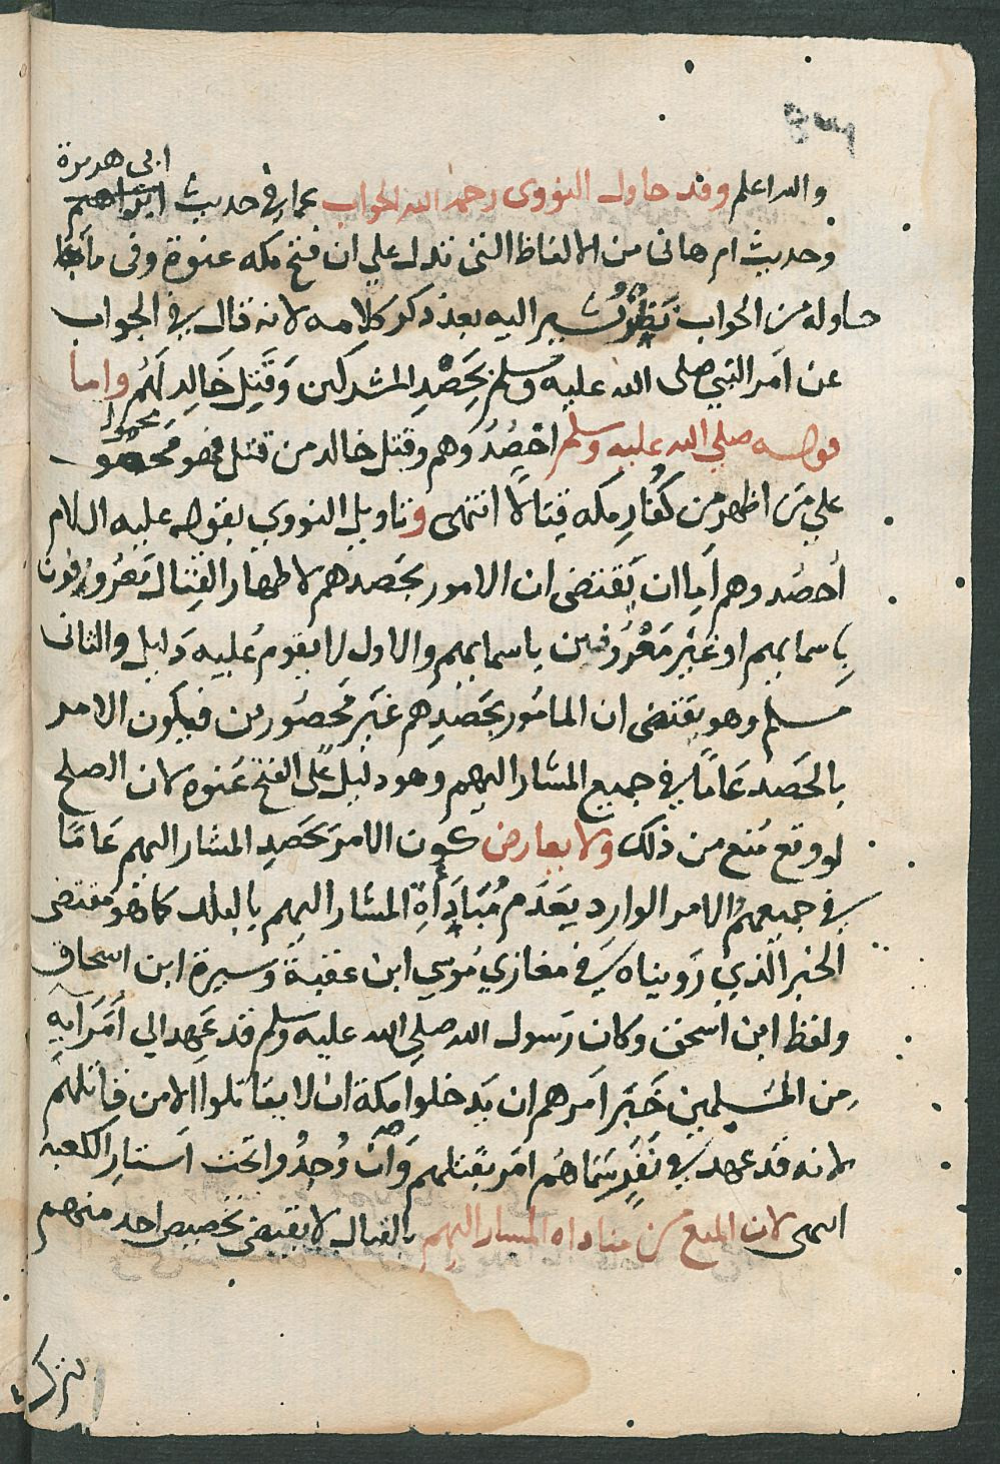 ابى هريرة
والله اعلم وقد حاول النووى رحمه الله الجواب عما في حديث ابراهيم
وحديث ام هانى من الالفاظ التى تدل علي ان فتح مكه عنوة وفى ما
حاوله من الجواب نَظَرٌ نُشير اليه بعد ذكر كلامه لانه قال في الجواب
عن اَمر النبي صلى الله عليه وسلم بحَصْدِ المشركين وَقَتْلِ خَالِدٍ لَهُم واما
قوله صلي الله عليه وسلم احْصُدُوهم وقتل خالد من قتل فهو مَحمو
محمول
علي مَن اظهر من كُفّارِ مكه قِتَالاً انتهى وتاويل النووي بقوله عليه السلام
اُحصُدوهم اِما ان يَقتضى ان الامور بحَصدهم لاظهار القِتال مَعْرُوفون
بِاسمايهم او غَيْر مَعْرُوفين باسمايهم والاول لا يقوم عليه دَليل والثانى
مسلم وهو يقتضى ان المامُور بحَصْدِهم غَيْر مَحصُورين فيكون الامر
بالحَصد عَامًا في جميع المشار اليهم وهو دليل على الفتح عَنوة لان الصلح
لو وقع مَنع من ذلك ولا يعارض كون الامر بحَصدِ المشار اليهم عَامًا
في جميعهم الامر الوارد بعَدَم مُبَادَاةِ المشار اليهم بالقتال كما هو مقتضى
الخبر الّذي رَويناه في مغازي مُوسي ابن عقبة وسيرة ابن اسحاق
ولفظ ابن اسحق وكان رَسول الله صلي الله عليه وسلم قد عَهِد الي اُمَرآيه
من المُسلمين حَيَن اَمرهم ان يَدخلوا مكة ان لا يقاتلوا الا من قاتلهم
الا انه قد عهد في نَفَرٍ سَمّاهُم اَمر بقتلهم وَاِن وُجِدُوا تحت اَستارِ الكعبه
انتهى لان المنع من مناداه المشار اليهم بالقتال لا يقتضى تخصيص احد منهم